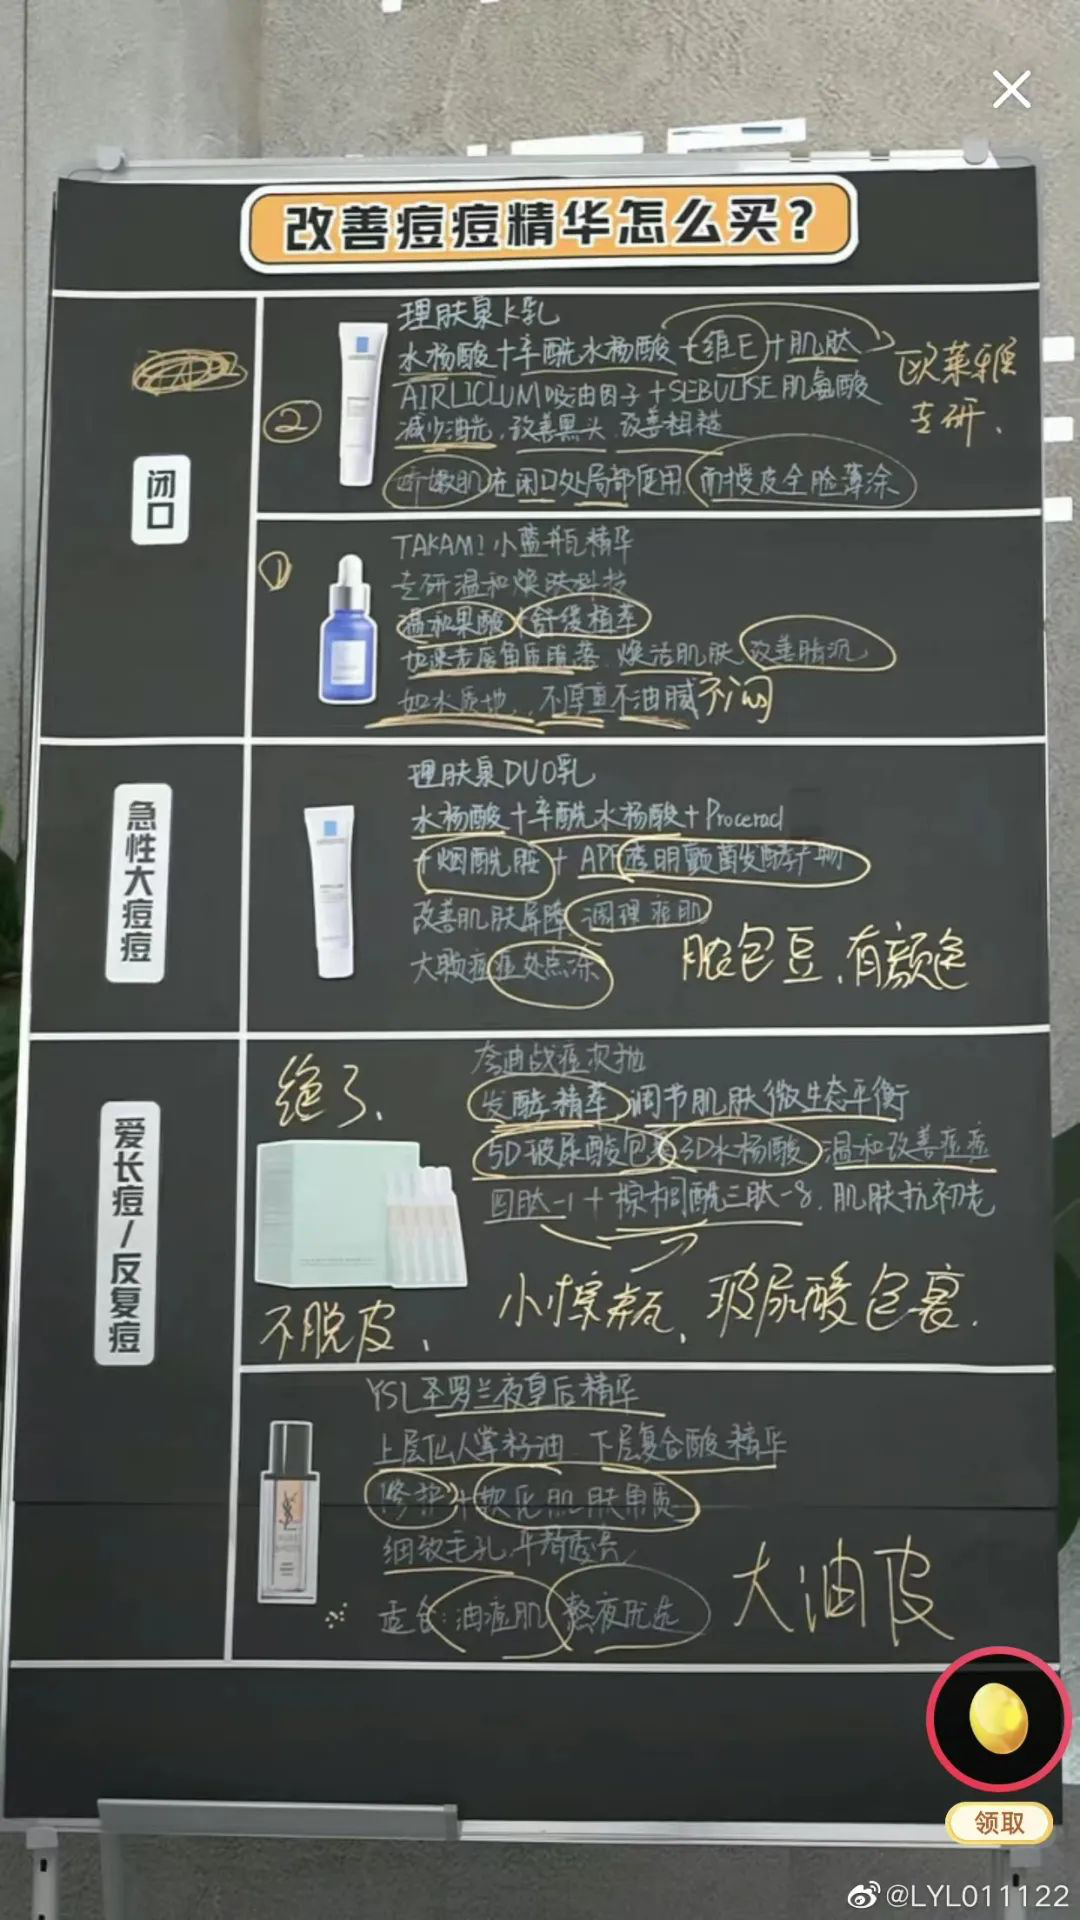 改善痘痘精华怎么买?
闭口
②
理肤泉K乳
水杨酸+辛酰水杨酸+维E+肌肽
欧莱雅
专研、
AIRLICLUM吸油因子+SEBULISE肌氨酸
减少油光、改善黑头、改善粗糙
娇嫩肌在闭口处局部使用、耐授皮全脸薄涂
①
TAKAMI小蓝瓶精华
专研温和焕肤科技
温和果酸+舒缓植萃
加速老废角质脱落、焕活肌肤、改善脂沉
如水质地、不厚重不油腻不闷
急性大痘痘
理肤泉DUO乳
水杨酸+辛酰水杨酸+Procerad
+烟酰胺+APF透明颤菌发酵产物
改善肌肤屏障、调理痘肌
大颗痘痘处点涂
脓包豆、有颜色
爱长痘/反复痘
绝了、
夸迪战痘次抛
发酵精萃、调节肌肤微生态平衡
5D玻尿酸包裹3D水杨酸、温和改善痘痘
四肽-1+棕榈酰三肽-8、肌肤抗初老
不脱皮、
小棕瓶、玻尿酸包裹.
YSL圣罗兰夜皇后精华
上层仙人掌籽油、下层复合酸精华
修护+软化肌肤角质
细致毛孔、平滑透亮
适合:油痘肌、熬夜优选
大油皮
领取
@LYL011122